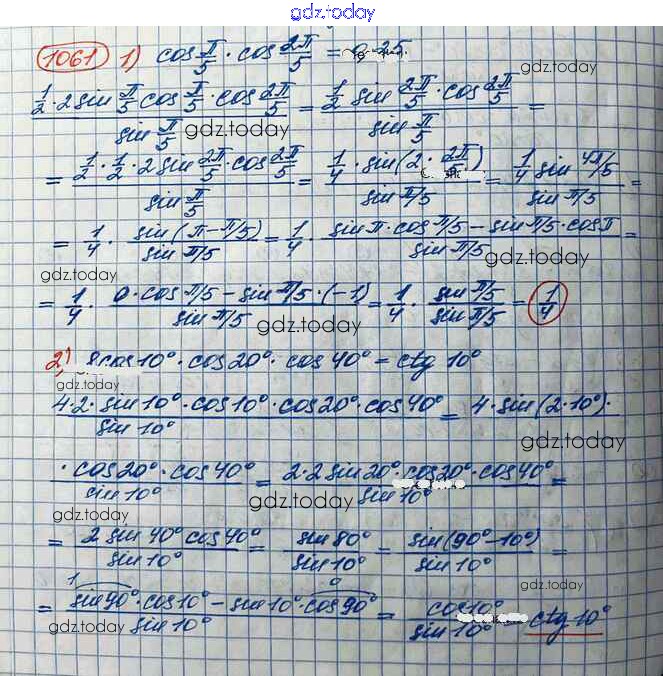 gdz.today
1061 1) cos π/5 · cos 2π/5 = 0,25
gdz.today
(1/2 · 2 sin π/5 cos π/5 · cos 2π/5) / (sin π/5) = (1/2 sin 2π/5 · cos 2π/5) / (sin π/5) =
gdz.today
= (1/2 · 1/2 · 2 sin 2π/5 · cos 2π/5) / (sin π/5) = (1/4 · sin(2 · 2π/5)) / (sin π/5) = (1/4 sin 4π/5) / (sin π/5) =
gdz.today
= 1/4 · (sin(π-π/5)) / (sin π/5) = 1/4 · (sin π · cos π/5 - sin π/5 · cos π) / (sin π/5) =
gdz.today gdz.today
= 1/4 · (0 · cos π/5 - sin π/5 · (-1)) / (sin π/5) = 1/4 · (sin π/5) / (sin π/5) = 1/4
gdz.today
2) 8cos10° · cos20° · cos40° = ctg 10°
gdz.today
(4·2· sin10° · cos10° · cos20° · cos40°) / (sin 10°) = 4 · sin(2·10°) ·
gdz.today
(· cos20° · cos40°) / (sin 10°) = (2·2 sin20° · cos20° · cos40°) / (sin 10°) =
gdz.today gdz.today
= (2 sin 40° cos 40°) / (sin 10°) = (sin 80°) / (sin 10°) = (sin(90°-10°)) / (sin 10°) =
1 0
= (sin90° · cos10° - sin10° · cos90°) / (sin 10°) = (cos10°) / (sin 10°) = ctg 10°
gdz.today gdz.today